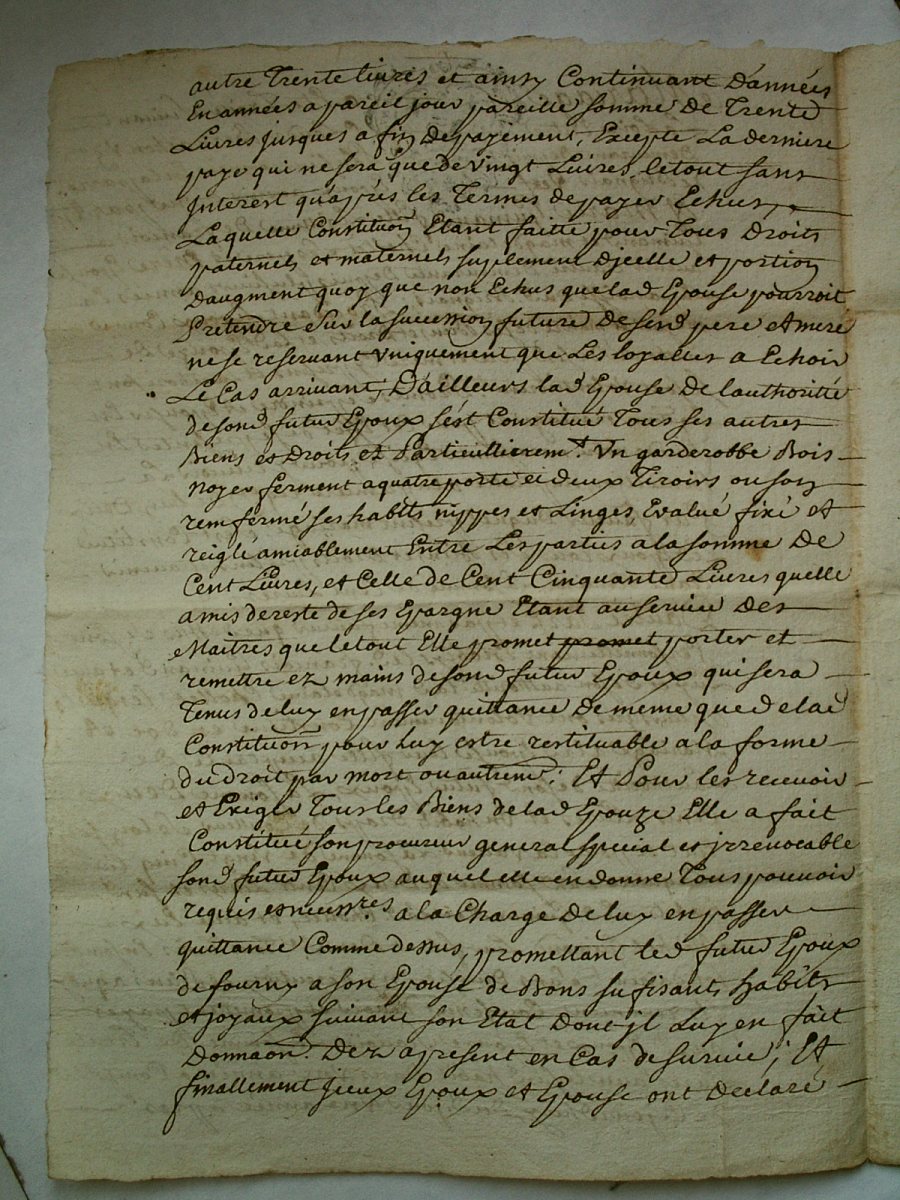 autre Trente livres et ainsy Continuant Dannées
En années a pareil jour pareille somme De Trente
Livres jusques a fin Depayement, Excepte La derniere
paye qui ne sera que de vingt Livres, le tout sans
Interest qu'apres les Termes depayer Echus,
Laquelle Constituon Etant faitte pour Tous Droits
paternels et maternels suplement Djcelle et portion
Daugment quoy que non Echus que lad Epouse pourroit
Pretendre sur la succession future De send pere et mere
ne se reservant vniquement que Les loyalles a Echoir
Le Cas arrivant, D'ailleurs lad Epouse De lauthorité
de sond futur Epoux s'est Constitué Tous ses autres
Biens et Droits et Particullierem.t Vn garderobbe Bois
noyer ferment a quatre porte et deux Tiroirs ou son
remfermé ses habits nippes et Linges, Evalué fixé et
reiglé amiablement Entre Les parties a la somme De
Cent Livres, et Celle de Cent Cinquante Livres quelle
a mis de reste de ses Epargne Etant au service Des
Maitres que le tout Elle promet promet porter et
remettre ez mains de sond futur Epoux qui sera
Tenus de luy en passer quittance De meme que de lad
Constituon pour Luy estre restituable a la forme
du Droit par mort ou autrem.; Et Pour les recevoir
et Exiger Tous les Biens de lad Epouze Elle a fait
Constitué son procureur general special et jrrevocable
sond futur Epoux auquel elle en donne Tous pouvoir
requis et necess.res a la Charge De luy en passer
quittance Comme dessus, promettant led futur Epoux
de fourny a son Epouse de Bons sufisants habits
et joyaux suivant son Etat Dont jl Luy en fait
Donnaon Dez apresent en Cas de survie; Et
finallement jceux Epoux et Epouse ont Declaré